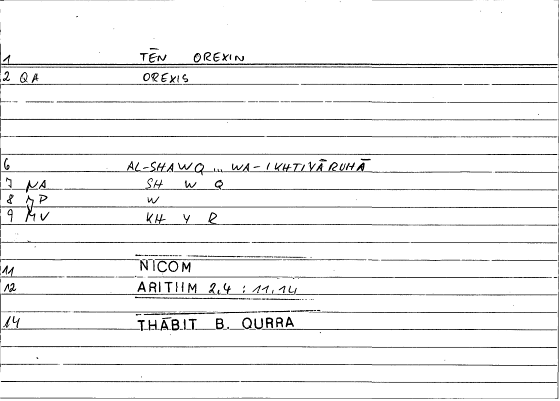 1 TĒN OREXIN
2 QA OREXIS
6 AL-SHAWQ ... WA-IKHTIYĀRUHĀ
7 NA SH W Q
8 MP W
9 MV KH Y R
11 NICOM
12 ARITHM 2,4 : 11,14
14 THĀBIT B. QURRA